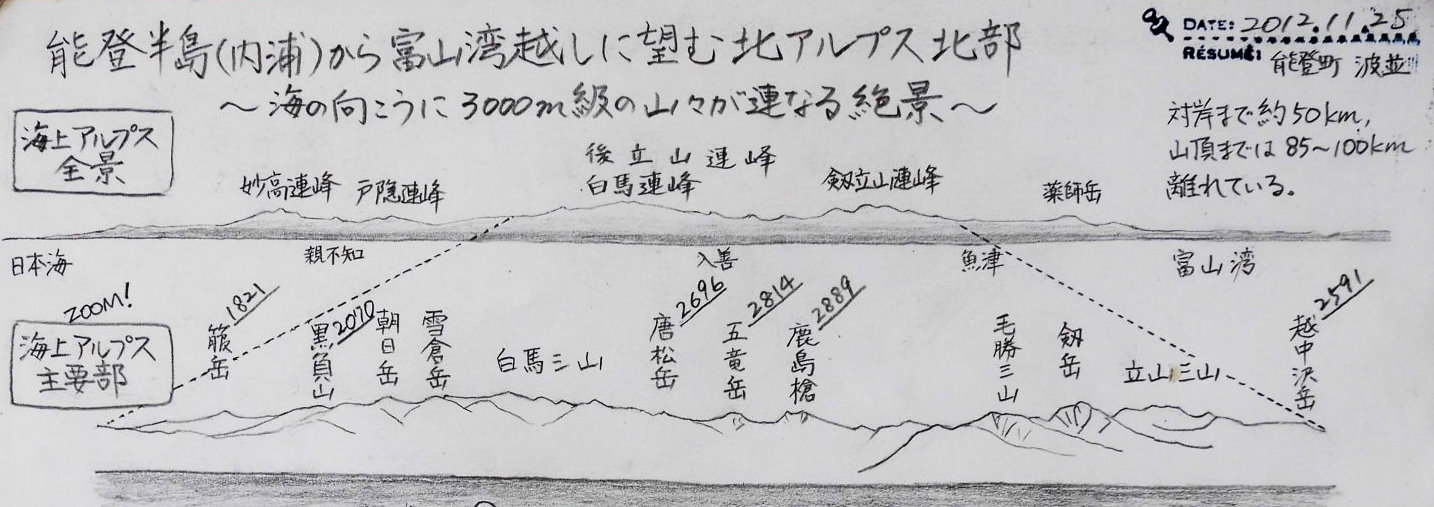 能登半島(内浦)から富山湾越しに望む北アルプス北部
～海の向こうに3000m級の山々が連なる絶景～
DATE: 2012.11.25
RÉSUMÉ: 能登町 波並
対岸まで約50km,
山頂までは85～100km
離れている。
海上アルプス
全景
妙高連峰
戸隠連峰
後立山連峰
白馬連峰
剱立山連峰
薬師岳
日本海
親不知
入善
魚津
富山湾
ZOOM!
海上アルプス
主要部
箙岳
1821
黒負山
2070
朝日岳
雪倉岳
白馬三山
唐松岳
2696
五竜岳
2814
鹿島槍
2889
毛勝三山
剱岳
立山三山
越中沢岳
2591